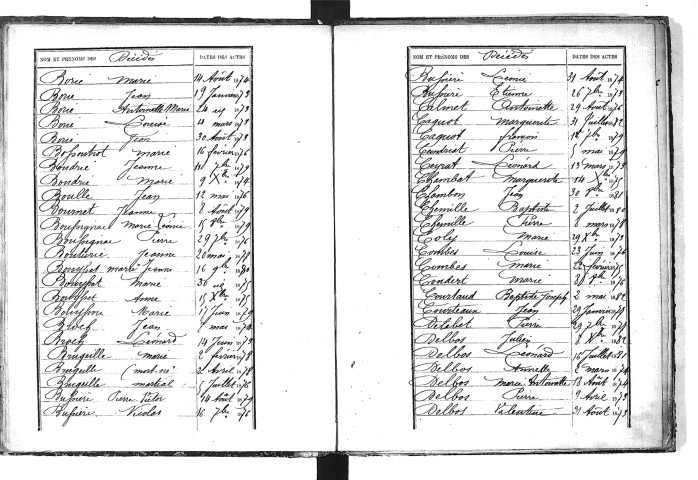 NOM ET PRÉNOMS DES Décédés DATES DES ACTES
Borie Marie 14 Août 1874
Borie Jean 19 Janvier 1873
Borie Antoinette Marie 24 1873
Borie Louise 4 mars 1873
Borie Jean 30 Août 1873
marie 16 février 1876
Boudrie Jeanne 11 7bre 1879
Boudrie Marie 9 Xbre 1874
Boulle Jean 12 mai 1876
Bournet Jeanne 2 Août 1879
Boussignac Marie Léonie 15 8bre 1879
Boussignac Pierre 29 7bre 1876
Boutierie Jeanne 20 mai 1879
Bouyssat marie Jeanne 16 9bre 1880
Bouyssat Marie 30 1875
Bouyssat Anne 15 Xbre 1875
Bouyssou Marie 17 Juin 1879
Broch Jean 7 mai 1874
Broch Léonard 14 Juin 1873
Bruguille marie 2 février 1878
Bruguille (mort-né) 2 Avril 1878
Bruguille martial 5 Juillet 1876
Bussière Pierre Victor 14 Août 1874
Bussière Nicolas 16 7bre 1876
NOM ET PRÉNOMS DES Décédés DATES DES ACTES
Bussière Léonie 31 Août 1874
Bussière Etienne 26 7bre 1873
Calmet Antoinette 29 Août 1876
Caquot Marguerite 31 Juillet 1882
Caquot François 1er 7bre 1879
Pierre 5 mai 1879
Ceyrat Léonard 13 mars 1873
Chambat Marguerite 14 Xbre 1875
Chambon Jean 30 8bre 1881
Chemille Baptiste 2 Juillet 1880
Chemille Pierre 8 mars 1878
Coly Marie 29 Xbre 1873
Combes Louise 23 Juin 1876
Combes Marie 22 février 1875
Condert Marie 30 1876
Courtaud Baptiste Joseph 2 mai 1882
Courteaux Jean 29 Janvier 1878
Delabet Pierre 29 7bre 1874
Delbos Julien 8 Xbre 1882
Delbos Léonard 16 Juillet 1881
Delbos Annette 2 mars 1874
Delbos Marie Antoinette 13 Août 1874
Delbos Pierre 9 Avril 1873
Delbos Valentine 31 Août 1873